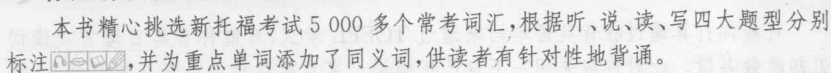 本书精心挑选新托福考试 5 000 多个常考词汇,根据听、说、读、写四大题型分别
标注,并为重点单词添加了同义词,供读者有针对性地背诵。